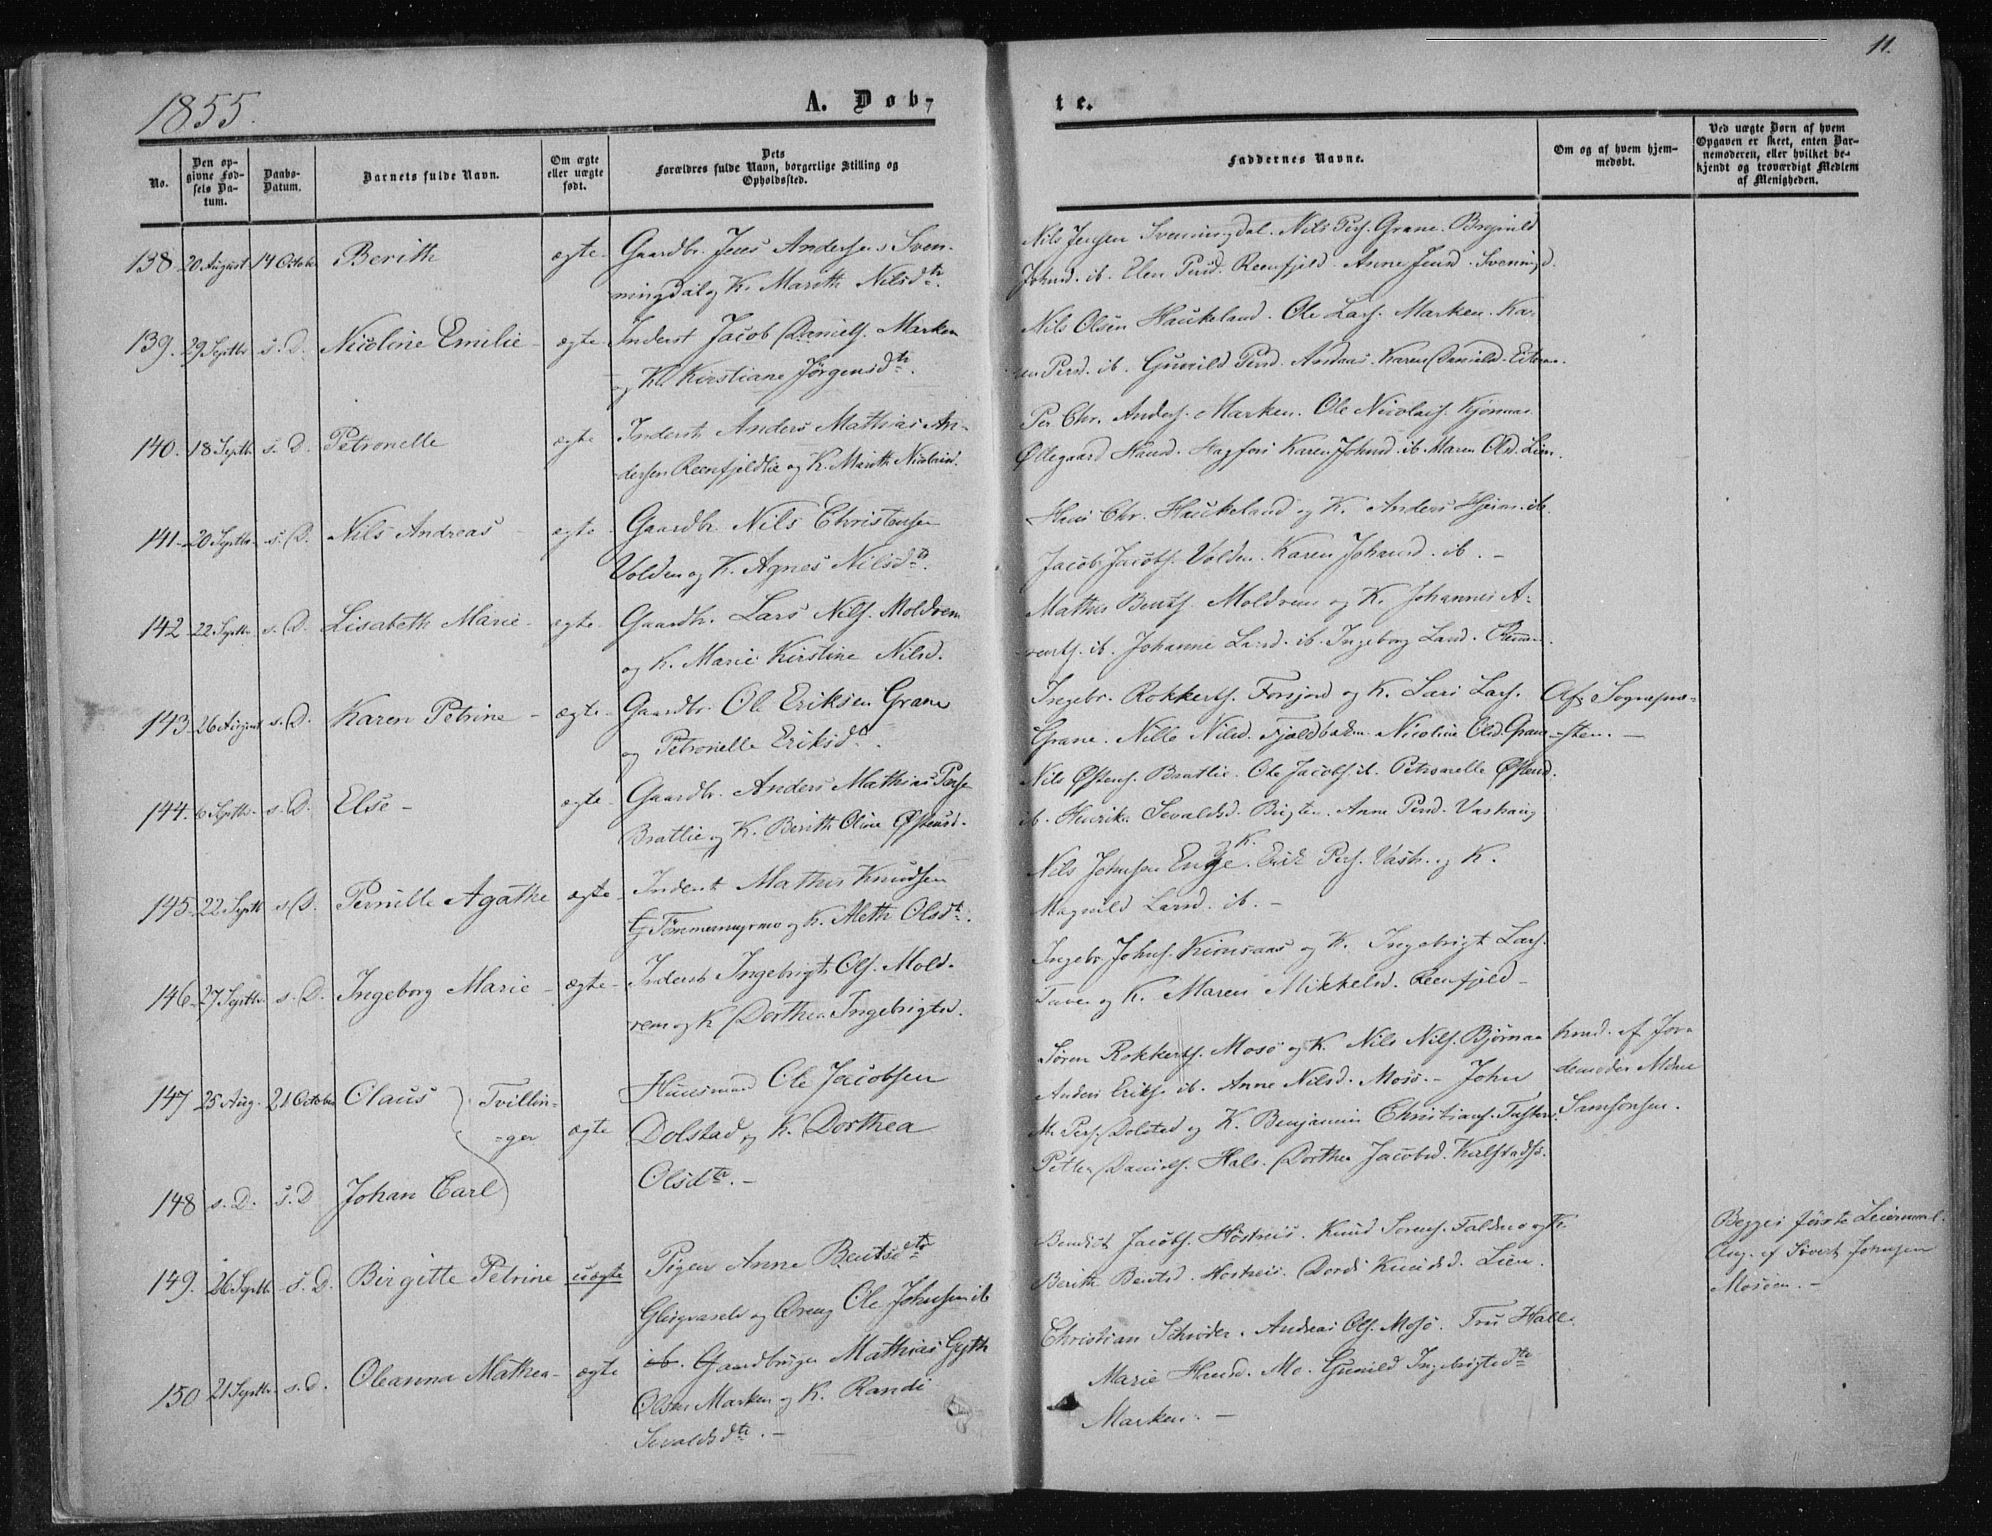 11.
1855.
A. Døb-
te.
No.
Den op-
givne Fød-
sels Da-
tum.
Daabs-
Datum.
Barnets fulde Navn.
Om ægte
eller uægte
født.
Dets
Forældres fulde Navn, borgerlige Stilling og
Opholdssted.
Faddernes Navne.
Om og af hvem hjem-
medøbt.
Ved uægte Børn af hvem
Opgaven er skeet, enten Bar-
nemoderen, eller hvilket be-
kjendt og troværdigt Medlem
af Menigheden.
138 20 August 14 October Berith ægte- Gaardbr. Jens Andersen Sven-
ningdal og K. Marith Nilsdtr.
Nils Jensen Svenningdal. Nils Pers. Grane.
Johnsd. ib. Elen Persd. Reenfjeld. Anne Jensd. Svenningd.
139. 29 Septbr s. D. Nicoline Emilie- ægte- Inderst Jacob Daniels. Marken
og K. Kirstiane Jørgensdtr.
Nils Olsen Haukeland. Ole Lars. Marken. Ka-
ren Persd. ib. Gunild Persd. Andaas. Karen Danielsd.
140. 18 Septbr s. D. Petronelle ægte Inderst Anders Mathias An-
dersen Reenfjeldlie og K. Marith Nicolaisd.
Per Chr. Anders. Marken. Ole Nicolais. Kjønnaas.
Øllegaard Hansd. Hagfors Karen Johnsd. ib. Maren Olsd. Lien.
141- 20 Septbr- s. D. Nils Andreas- ægte- Gaardbr Nils Christensen
Volden og K. Agnes Nilsdtr.
Hans Chr. Haukeland og K. Anders ib.
Jacob Jacobs. Volden. Karen Johansd. ib. -
142 22 Septbr s. D. Lisabeth Marie- ægte- Gaardbr. Lars Nils. Moldrem
og K. Marie Kirstine Nilsd.
Mathis Bents. Moldrem og K. Johannes A-
rents. ib. Johanne Larsd. ib. Ingeborg Larsd.
143- 26 August s. D. Karen Petrine- ægte- Gaardbr. Ole Eriksen Grane
og Petronelle Eriksdtr.
Ingebr. Rokkerts. Forsjord og K. Lars Lars. Af Sognepræ-
Grane. Nille Nilsd. Fjeldbakm. Nicoline Olsd. Grane -sten. -
144. 6 Septbr. s. D. Else- ægte- Gaardbr. Anders Mathias Perse
Bratlie og K. Berith Oline Østensd.
Nils Østens. Bratlie. Ole Jacobs. ib. Petronelle Østensd.
ib. Henrike Sevaldsd. Anne Persd.
145- 22 Septbr s. D. Pernille Agathe ægte- Inderst Mathis Knudsen
Tømmermyrmo og K. Aleth Olsdtr.
Nils Johnsen Enge og K. Erik Pers. og K.
Magnild Larsd. ib. -
146- 27 Septbr s. D. Ingeborg Marie- ægte- Inderst Ingebrigt Ols. Mold-
rem og K Dorthea Ingebrigtsd.
Ingebr. Johns. og K. Ingebrigt Lars.
og K. Maren Mikkelsd. Reenfjeld-
147 25 Aug. 21 October Claus Tvillin-
-ger ægte Huusmand Ole Jacobsen
Dolstad og K. Dorthea
Olsdtr. -
Søren Rokkerts. Mosø og K. Nils Nils. Bjørnaa hmd. af Jor-
Anders Eriks. ib. Anne Nilsd. Mosø- John demoder Mdme
M. Pers. Dolsted og K. Benjamin Christians. Samsonsen.
Petter Daniels. Hals. Dorthea Jacobsd.
148 s. D. s. D Johan Carl
149. 26 Septbr s. D. Birgitte Petrine uægte Pigen Anne Bentsdtr
og Dreng Ole Johnsen ib
Benedict Jacobs. Knud Sørens.
Berith Bentsd. Dordi Knudsd. Lien.
Begges første Leiermaal.
Opg. af Sivert Johnsen
Mosøen. -
150 21 Septbr. s. D. Oleanna Mathea- ægte ib. Gaardbruger Mathias Gjth
Olsen Marken og K. Randi
Sevaldsdtr. -
Christian Schrøder. Andreas Ols. Mosø. Fru Hall.
Marie Hansd. Mo. Gunild Ingebrigtsdtr
Marken. -